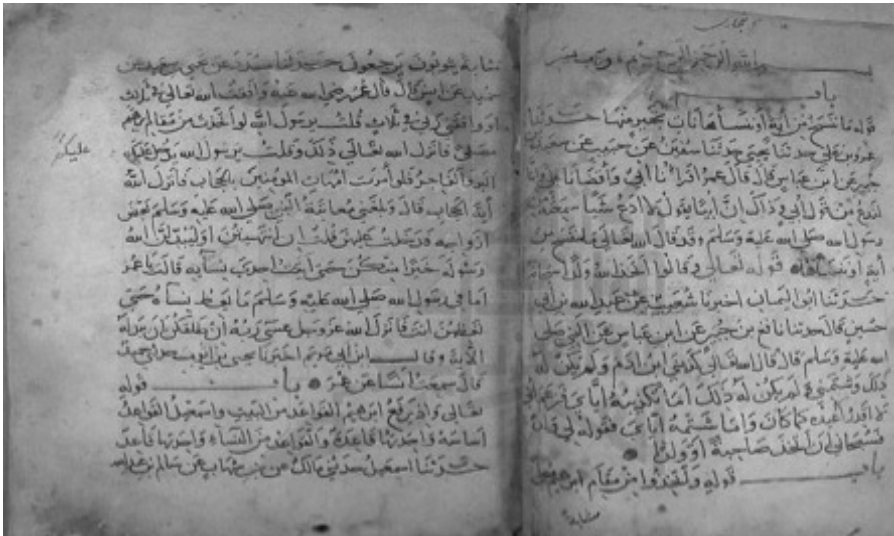 البخاري
بسم الله الرحمن الرحيم
باب
قوله ما ننسخ من أية أو ننسأها نأت بخير منها حدثنا
عمرو بن علي حدثنا يحيى حدثنا سفين عن حبيب عن سعيد بن
جبير عن ابن عباس قال قال عمر اقرأنا أبي وأقضانا علي وإنا
لندع من قول أبي وذاك أن أبيا يقول لا ادع شيا سمعته من
رسول الله صلى الله عليه وسلم وقد قال الله تعالى ما ننسخ من
أية أو ننسأها قوله تعالى وقالوا اتخذ الله ولدا سبحانه
حدثنا ابو اليمان اخبرنا شعيب عن عبد الله بن أبي
حسين قال حدثنا نافع بن جبير عن ابن عباس عن النبي صلى
الله عليه وسلم قال قال الله تعالى كذبني ابن ادم ولم يكن له
ذلك وشتمني ولم يكن له ذلك أما تكذيبه إياي فزعم اني
لا اقدر أن أعيده كما كان واما شتمه اياي فقوله لي ولد
فسبحاني أن أتخذ صاحبة أو ولدا
باب قوله واتخذوا من مقام ابرهيم مصلى
مثابة
مثابة يثوبون يرجعون حدثنا مسدد عن يحيى بن سعيد عن
حميد عن انس قال قال عمر رضي الله عنه وافقت الله تعالى في ثلاث
او وافقني ربي في ثلاث قلت يرسول الله لو اتخذت من مقام ابرهيم
مصلى فانزل الله تعالى ذلك وقلت يرسول الله يدخل عليك
البر والفاجر فلو أمرت امهات المومنين بالحجاب فانزل الله
أية الحجاب قال وبلغني معاتبة النبي صلى الله عليه وسلم بعض
ازواجه فدخلت عليهن قلت إن انتهيتن أو ليبدلن الله
رسوله خيرا منكن حتى أتيت احدى نسايه قالت يا عمر
أما في رسول الله صلى الله عليه وسلم ما يعظ نساه حتى
تعظهن انت فانزل الله عز وجل عسى ربه إن طلقكن ان يبدله
الأية وقال ابن ابي مريم اخبرنا يحيى بن ايوب حدثني حميد
قال سمعت أنسا عن عمر باب قوله
تعالى واذ يرفع ابرهيم القواعد من البيت واسمعيل القواعد
أساسه واحدتها قاعدة والقواعد من النساء واحدتها قاعد
حدثنا اسمعيل حدثني مالك عن ابن شهاب عن سالم بن عبد الله
عليكم